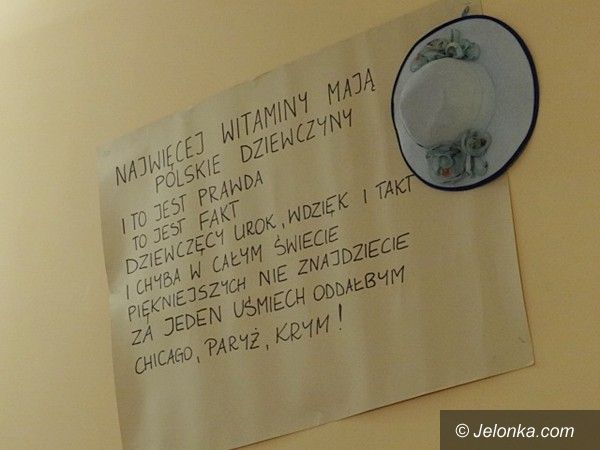 NAJWIĘCEJ WITAMINY MAJĄ
POLSKIE DZIEWCZYNY
I TO JEST PRAWDA
TO JEST FAKT
DZIEWCZĘCY UROK, WDZIĘK I TAKT
I CHYBA W CAŁYM ŚWIECIE
PIĘKNIEJSZYCH NIE ZNAJDZIECIE
ZA JEDEN UŚMIECH ODDAŁBYM
CHICAGO, PARYŻ, KRYM!
© Jelonka.com